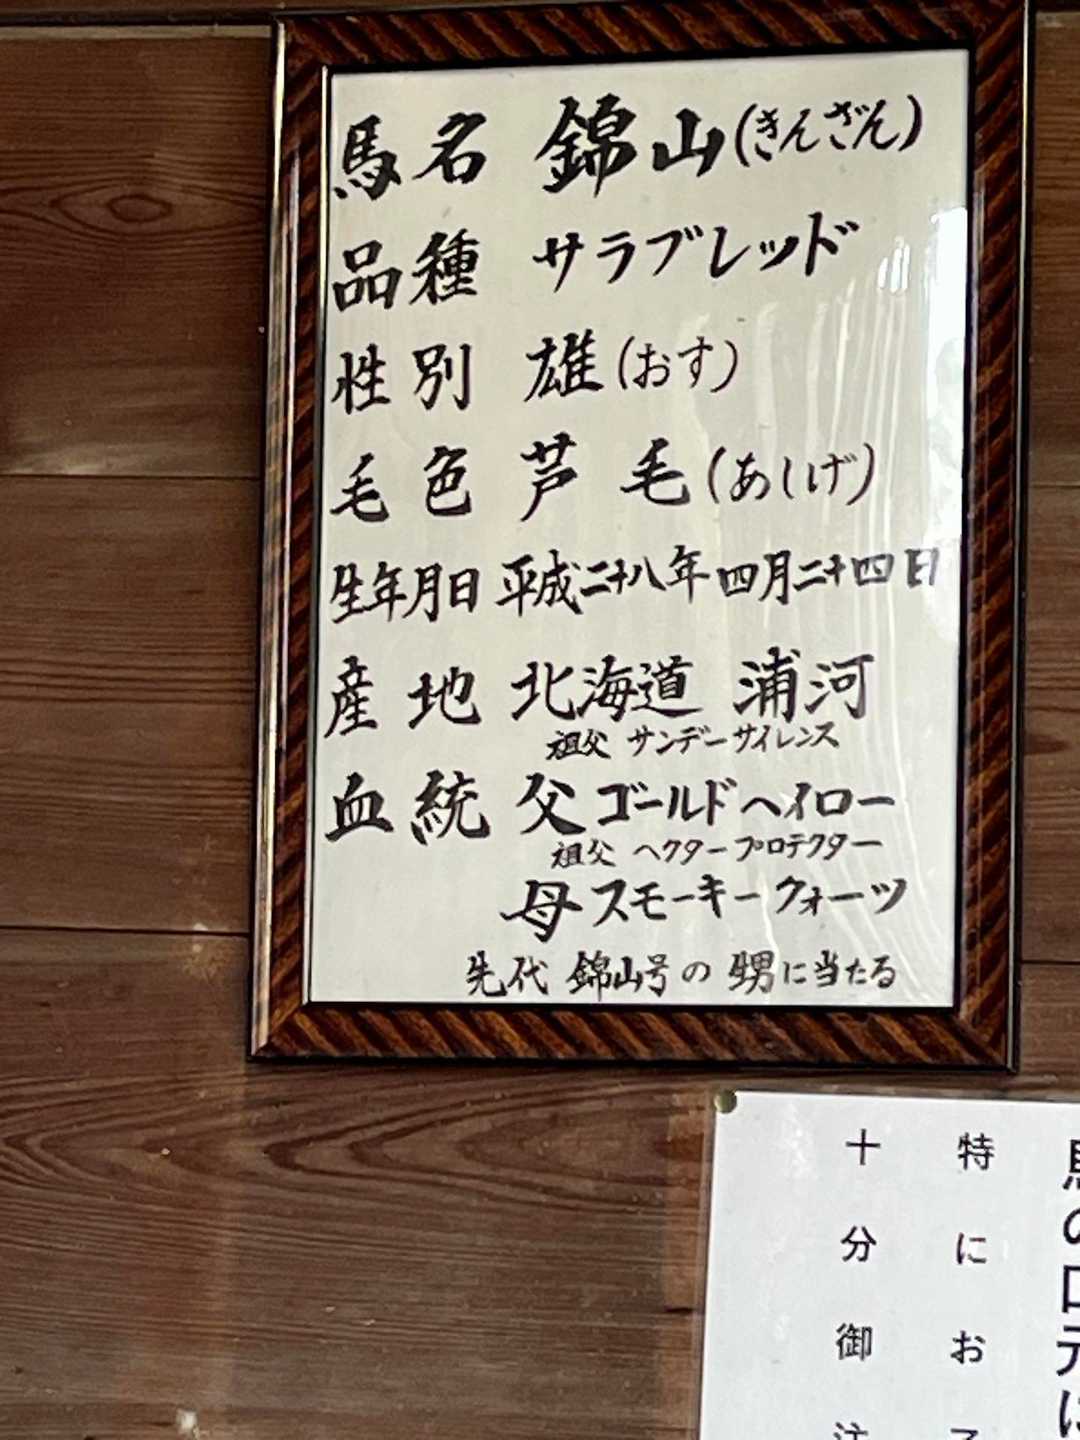 馬名 錦山(きんざん)
品種 サラブレッド
性別 雄(おす)
毛色 芦毛(あしげ)
生年月日 平成二十八年四月二十四日
産地 北海道 浦河
祖父 サンデーサイレンス
血統 父 ゴールドヘイロー
祖父 ヘクタープロテクター
母 スモーキークォーツ
先代 錦山号の甥に当たる
馬の口元に
特にお子
十分御注